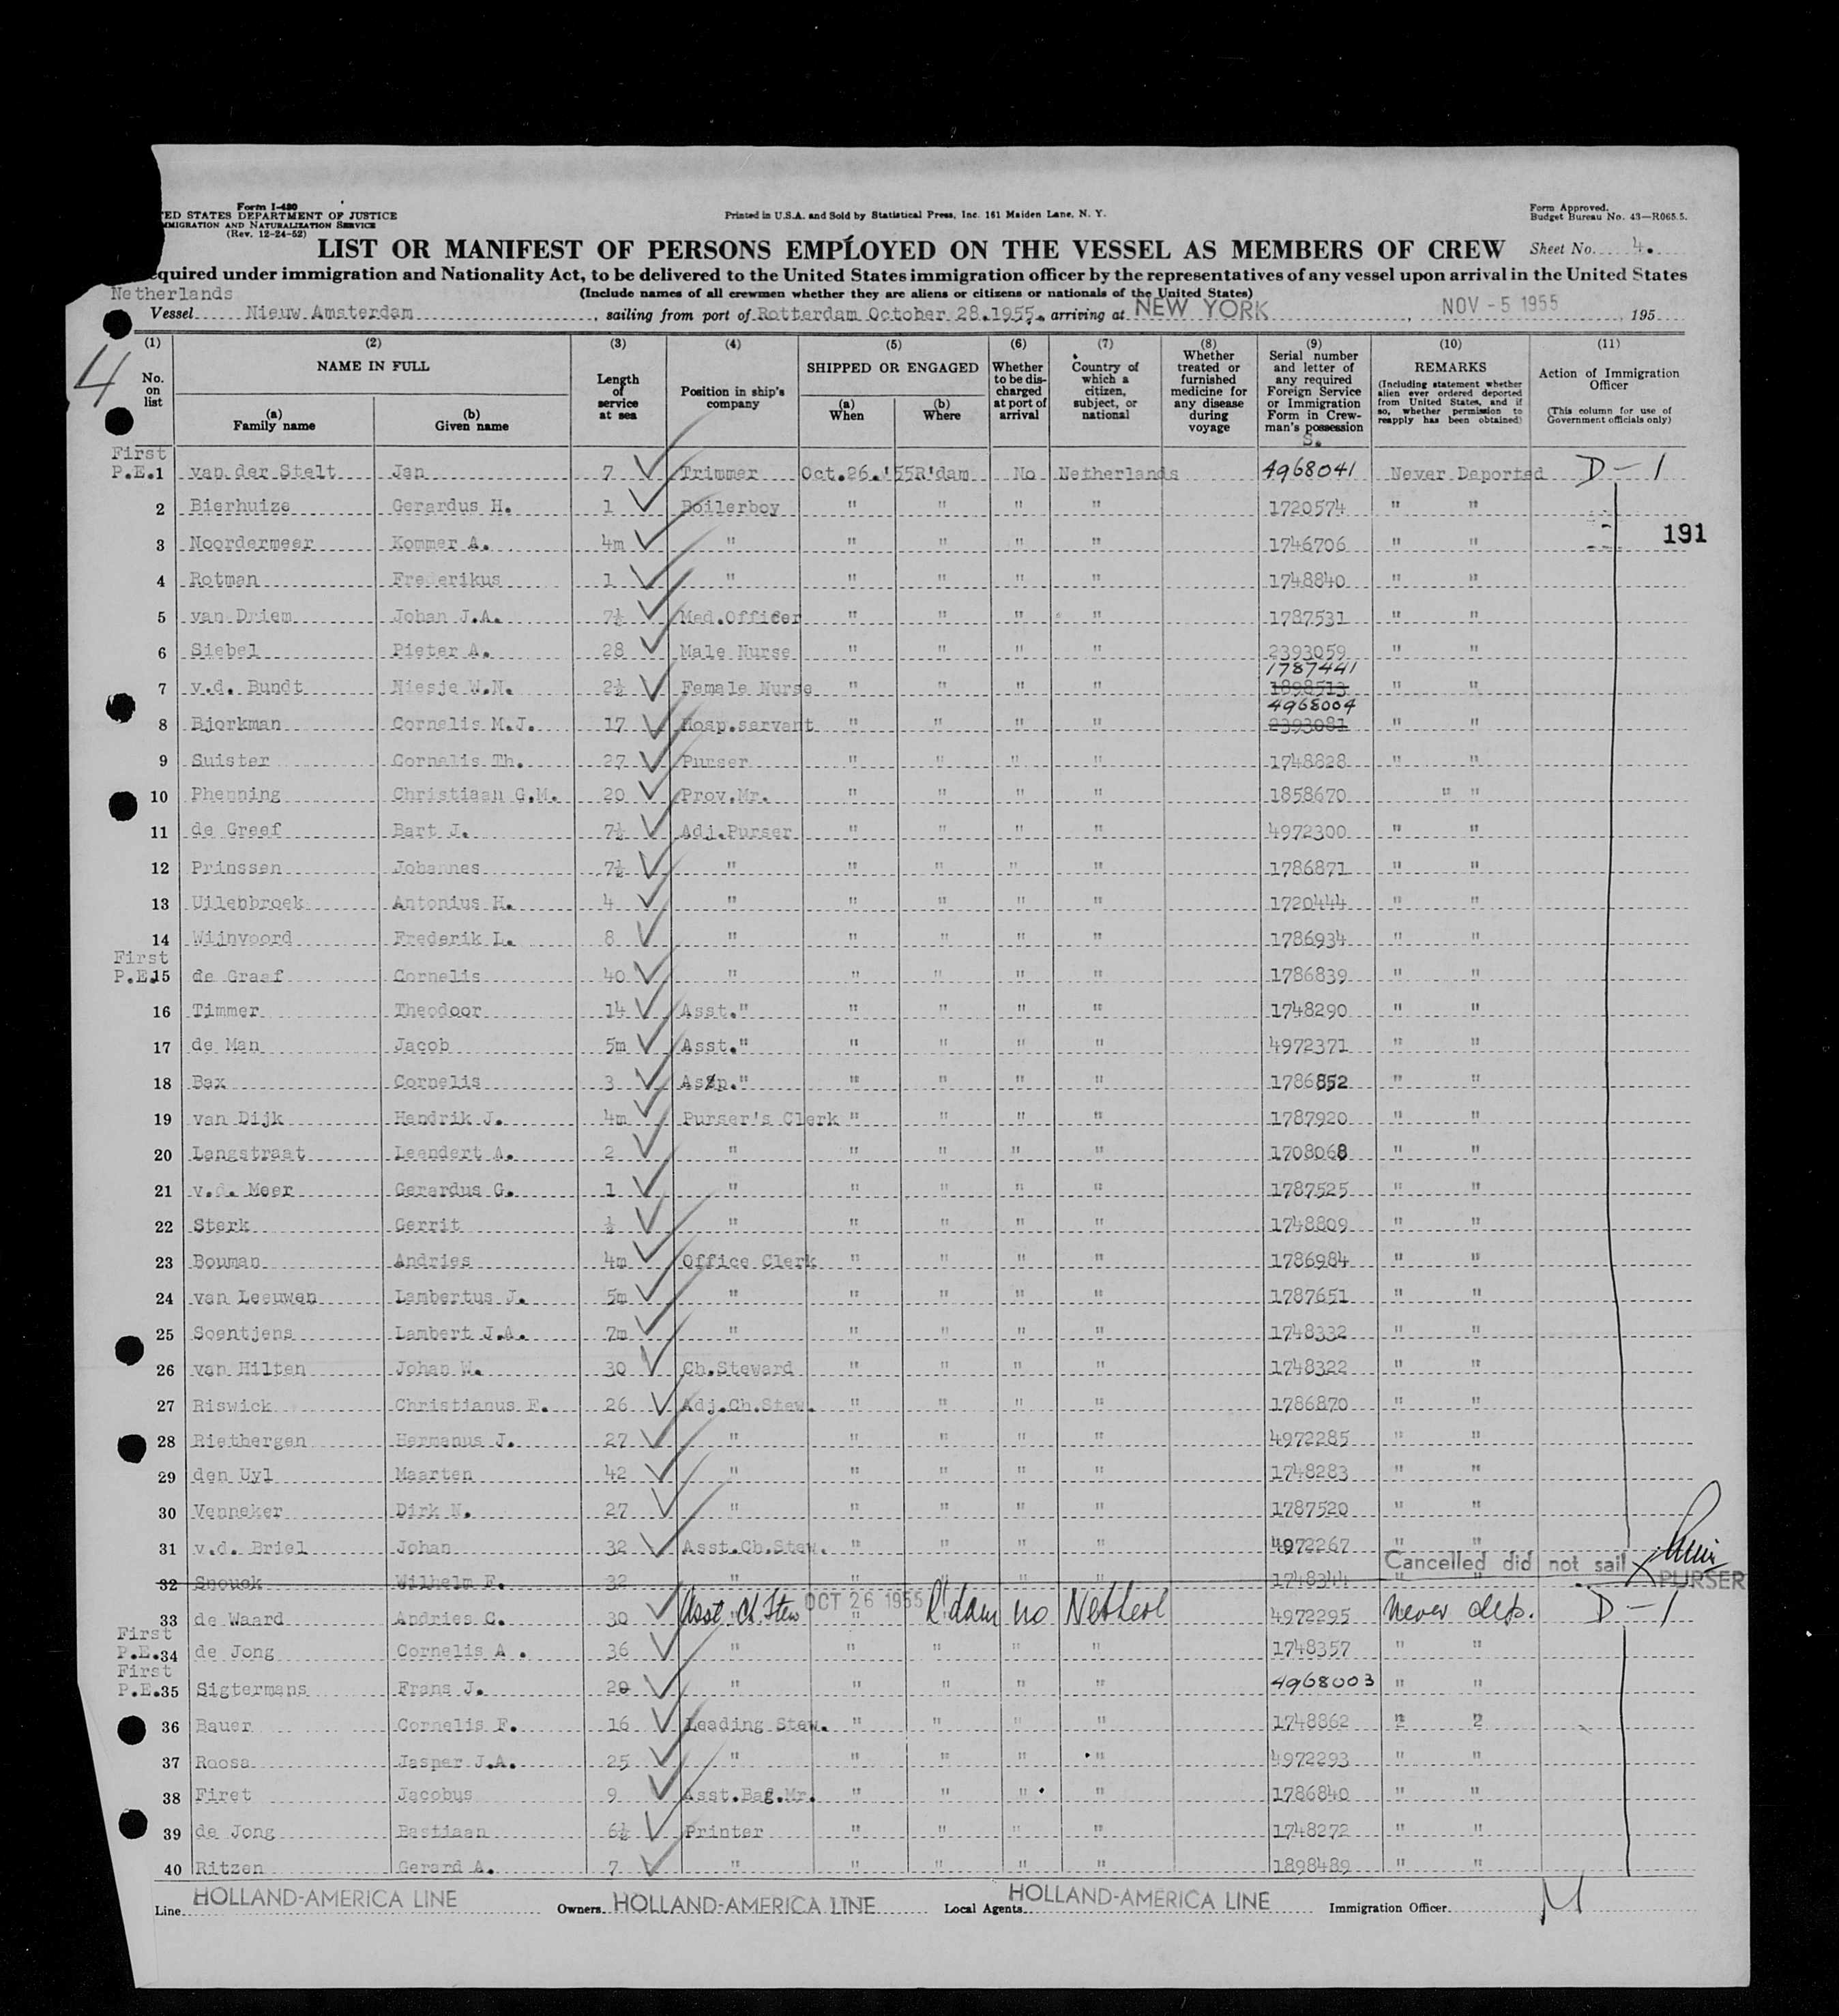 Form I-480
TED STATES DEPARTMENT OF JUSTICE
MMIGRATION AND NATURALIZATION SERVICE
(Rev. 12-24-52)
Printed in U.S.A. and Sold by Statistical Press, Inc. 161 Maiden Lane, N. Y.
Form Approved.
Budget Bureau No. 43—R065.5.
LIST OR MANIFEST OF PERSONS EMPLOYED ON THE VESSEL AS MEMBERS OF CREW Sheet No. 4.
equired under immigration and Nationality Act, to be delivered to the United States immigration officer by the representatives of any vessel upon arrival in the United States
(Include names of all crewmen whether they are aliens or citizens or nationals of the United States)
Netherlands
Vessel Nieuw Amsterdam, sailing from port of Rotterdam October 28.1955., arriving at NEW YORK, NOV - 5 1955 195
4
(1) (2) (3) (4) (5) (6) (7) (8) (9) (10) (11)
No. on list
NAME IN FULL
(a) Family name
(b) Given name
Length of service at sea
Position in ship's company
SHIPPED OR ENGAGED
(a) When
(b) Where
Whether to be discharged at port of arrival
Country of which a citizen, subject, or national
Whether treated or furnished medicine for any disease during voyage
Serial number and letter of any required Foreign Service or Immigration Form in Crewman's possession
S.
REMARKS
(Including statement whether alien ever ordered deported from United States, and if so, whether permission to reapply has been obtained)
Action of Immigration Officer
(This column for use of Government officials only)
First
P.E.1 van der Stelt Jan 7 Trimmer Oct.26.'55 R'dam No Netherlands 4968041 Never Deported D-1
2 Bierhuize Gerardus H. 1 Boilerboy " " " " 1720574 " "
191
3 Noordermeer Kommer A. 4m " " " " " 1746706 " "
4 Rotman Frederikus 1 " " " " " 1748840 " "
5 van Driem Johan J.A. 7½ Med.Officer " " " " 1787531 " "
6 Siebel Pieter A. 28 Male Nurse " " " " 2393059 " "
1787441
7 v.d. Bundt Niesje W.N. 2½ Female Nurse " " " " 1898513 " "
4968004
8 Bjorkman Cornelis M.J. 17 Hosp.servant " " " " 2393081 " "
9 Suister Cornelis Th. 27 Purser " " " " 1748828 " "
10 Phenning Christiaan G.M. 20 Prov.Mr. " " " " 1858670 " "
11 de Greef Bart J. 7½ Adj.Purser " " " " 4972300 " "
12 Prinssen Johannes 7½ " " " " " 1786871 " "
13 Uilenbroek Antonius H. 4 " " " " " 1720444 " "
14 Wijnvoord Frederik L. 8 " " " " " 1786934 " "
First
P.E.15 de Graaf Cornelis 40 " " " " " 1786839 " "
16 Timmer Theodoor 14 Asst." " " " " 1748290 " "
17 de Man Jacob 5m Asst." " " " " 4972371 " "
18 Bax Cornelis 3 Asp." " " " " 1786852 " "
19 van Dijk Hendrik J. 4m Purser's Clerk " " " " 1787920 " "
20 Langstraat Leendert A. 2 " " " " " 1708068 " "
21 v.d. Meer Gerardus G. 1 " " " " " 1787525 " "
22 Sterk Gerrit ½ " " " " " 1748809 " "
23 Bouman Andries 4m Office Clerk " " " " 1786984 " "
24 van Leeuwen Lambertus J. 5m " " " " " 1787651 " "
25 Soentjens Lambert J.A. 7m " " " " " 1748332 " "
26 van Hilten Johan W. 30 Ch.Steward " " " " 1748322 " "
27 Riswick Christianus F. 26 Adj.Ch.Stew. " " " " 1786870 " "
28 Rietbergen Hermanus J. 27 " " " " " 4972285 " "
29 den Uyl Maarten 42 " " " " " 1748283 " "
30 Venneker Dirk N. 27 " " " " " 1787520 " "
31 v.d. Briel Johan 32 Asst.Ch.Stew. " " " " 4972267 " "
Cancelled did not sail
PURSER
32 Snouck Wilhelm F. 32 " " " " " 1748344 " "
33 de Waard Andries C. 30 Asst. Ch. Stew OCT 26 1955 R'dam no Netherl 4972295 Never dep. D-1
First
P.E.34 de Jong Cornelis A . 36 " " " " " 1748357 " "
First
P.E.35 Sigtermans Frans J. 20 " " " " " 4968003 " "
36 Bauer Cornelis F. 16 Leading Stew. " " " " 1748862 " "
37 Roosa Jasper J.A. 25 " " " " " 4972293 " "
38 Firet Jacobus 9 Asst.Bag.Mr. " " " " 1786840 " "
39 de Jong Bastiaan 6½ Printer " " " " 1748272 " "
40 Ritzen Gerard A. 7 " " " " " 1898489 " "
Line HOLLAND-AMERICA LINE Owners HOLLAND-AMERICA LINE Local Agents HOLLAND-AMERICA LINE Immigration Officer M